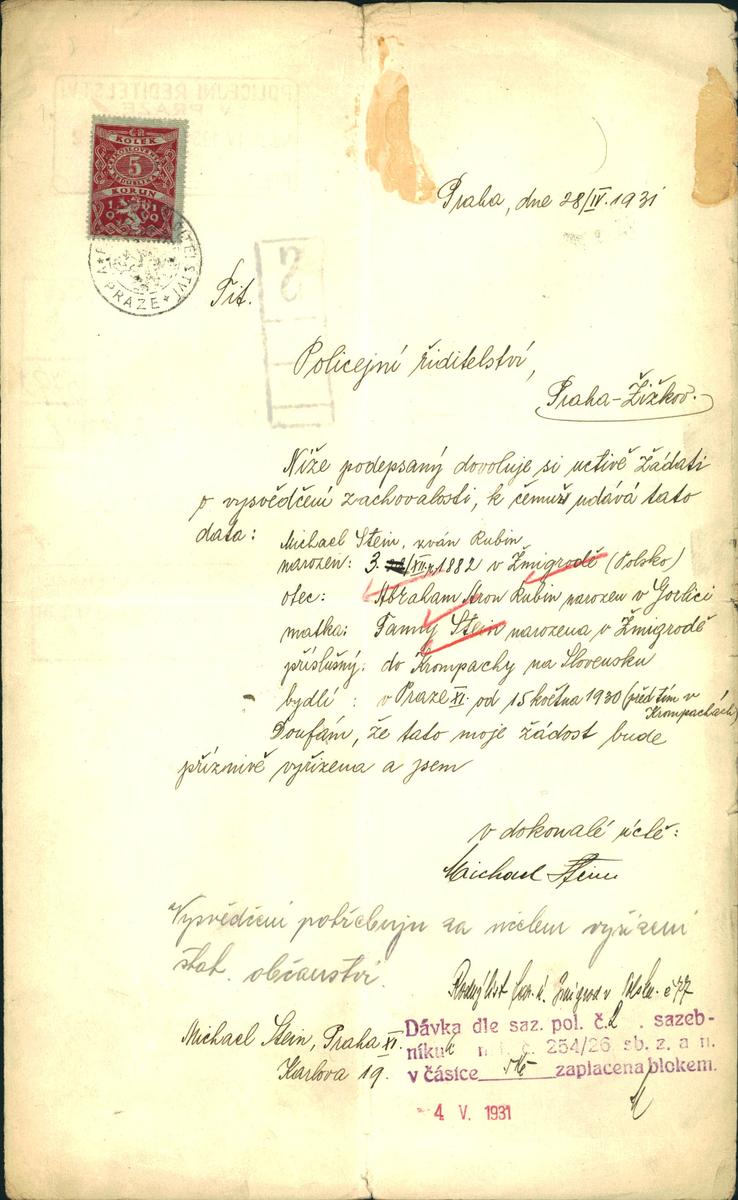 KOLEK
5
KORUN
1919
V PRAZE
Praha, dne 28/IV. 1931
Tit.
Policejní řiditelství,
Praha-Žižkov.
Níže podepsaný dovoluje si uctivě žádati
o vysvědčení zachovalosti, k čemuž udává tato
data:
Michael Stein, zván Rubin
narozen: 3. /XII. 1882 v Žmigrodě (Polsko)
otec: Abraham Aron Rubin narozen v Gorlici
matka: Fanny Stein narozena v Žmigrodě
příslušný: do Krompachy na Slovensku
bydlí: v Praze XI. od 15 května 1930 (před tím v
Krompachách)
Doufám, že tato moje žádost bude
příznivě vyřízena a jsem
v dokonalé úctě:
Michael Stein
Vysvědčení potřebuji za účelem vyřízení
stát. občanství.
Rodný list Žmigrod v Polsku č 77
Michael Stein, Praha XI.
Karlova 19.
Dávka dle saz. pol. č. 2. sazeb-
níku č. 254/26 sb. z. a n.
v částce 5Kč zaplacena blokem.
4 V. 1931